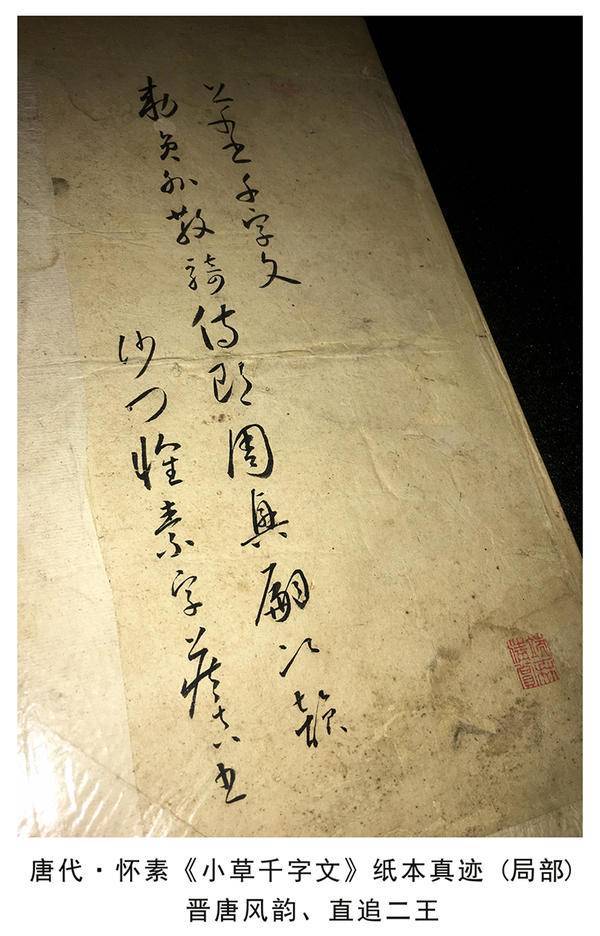 草書千字文
勑員外散騎侍郎周興嗣次韻
沙門懷素字藏真書
唐代·怀素《小草千字文》纸本真迹 (局部)
晋唐风韵、直追二王